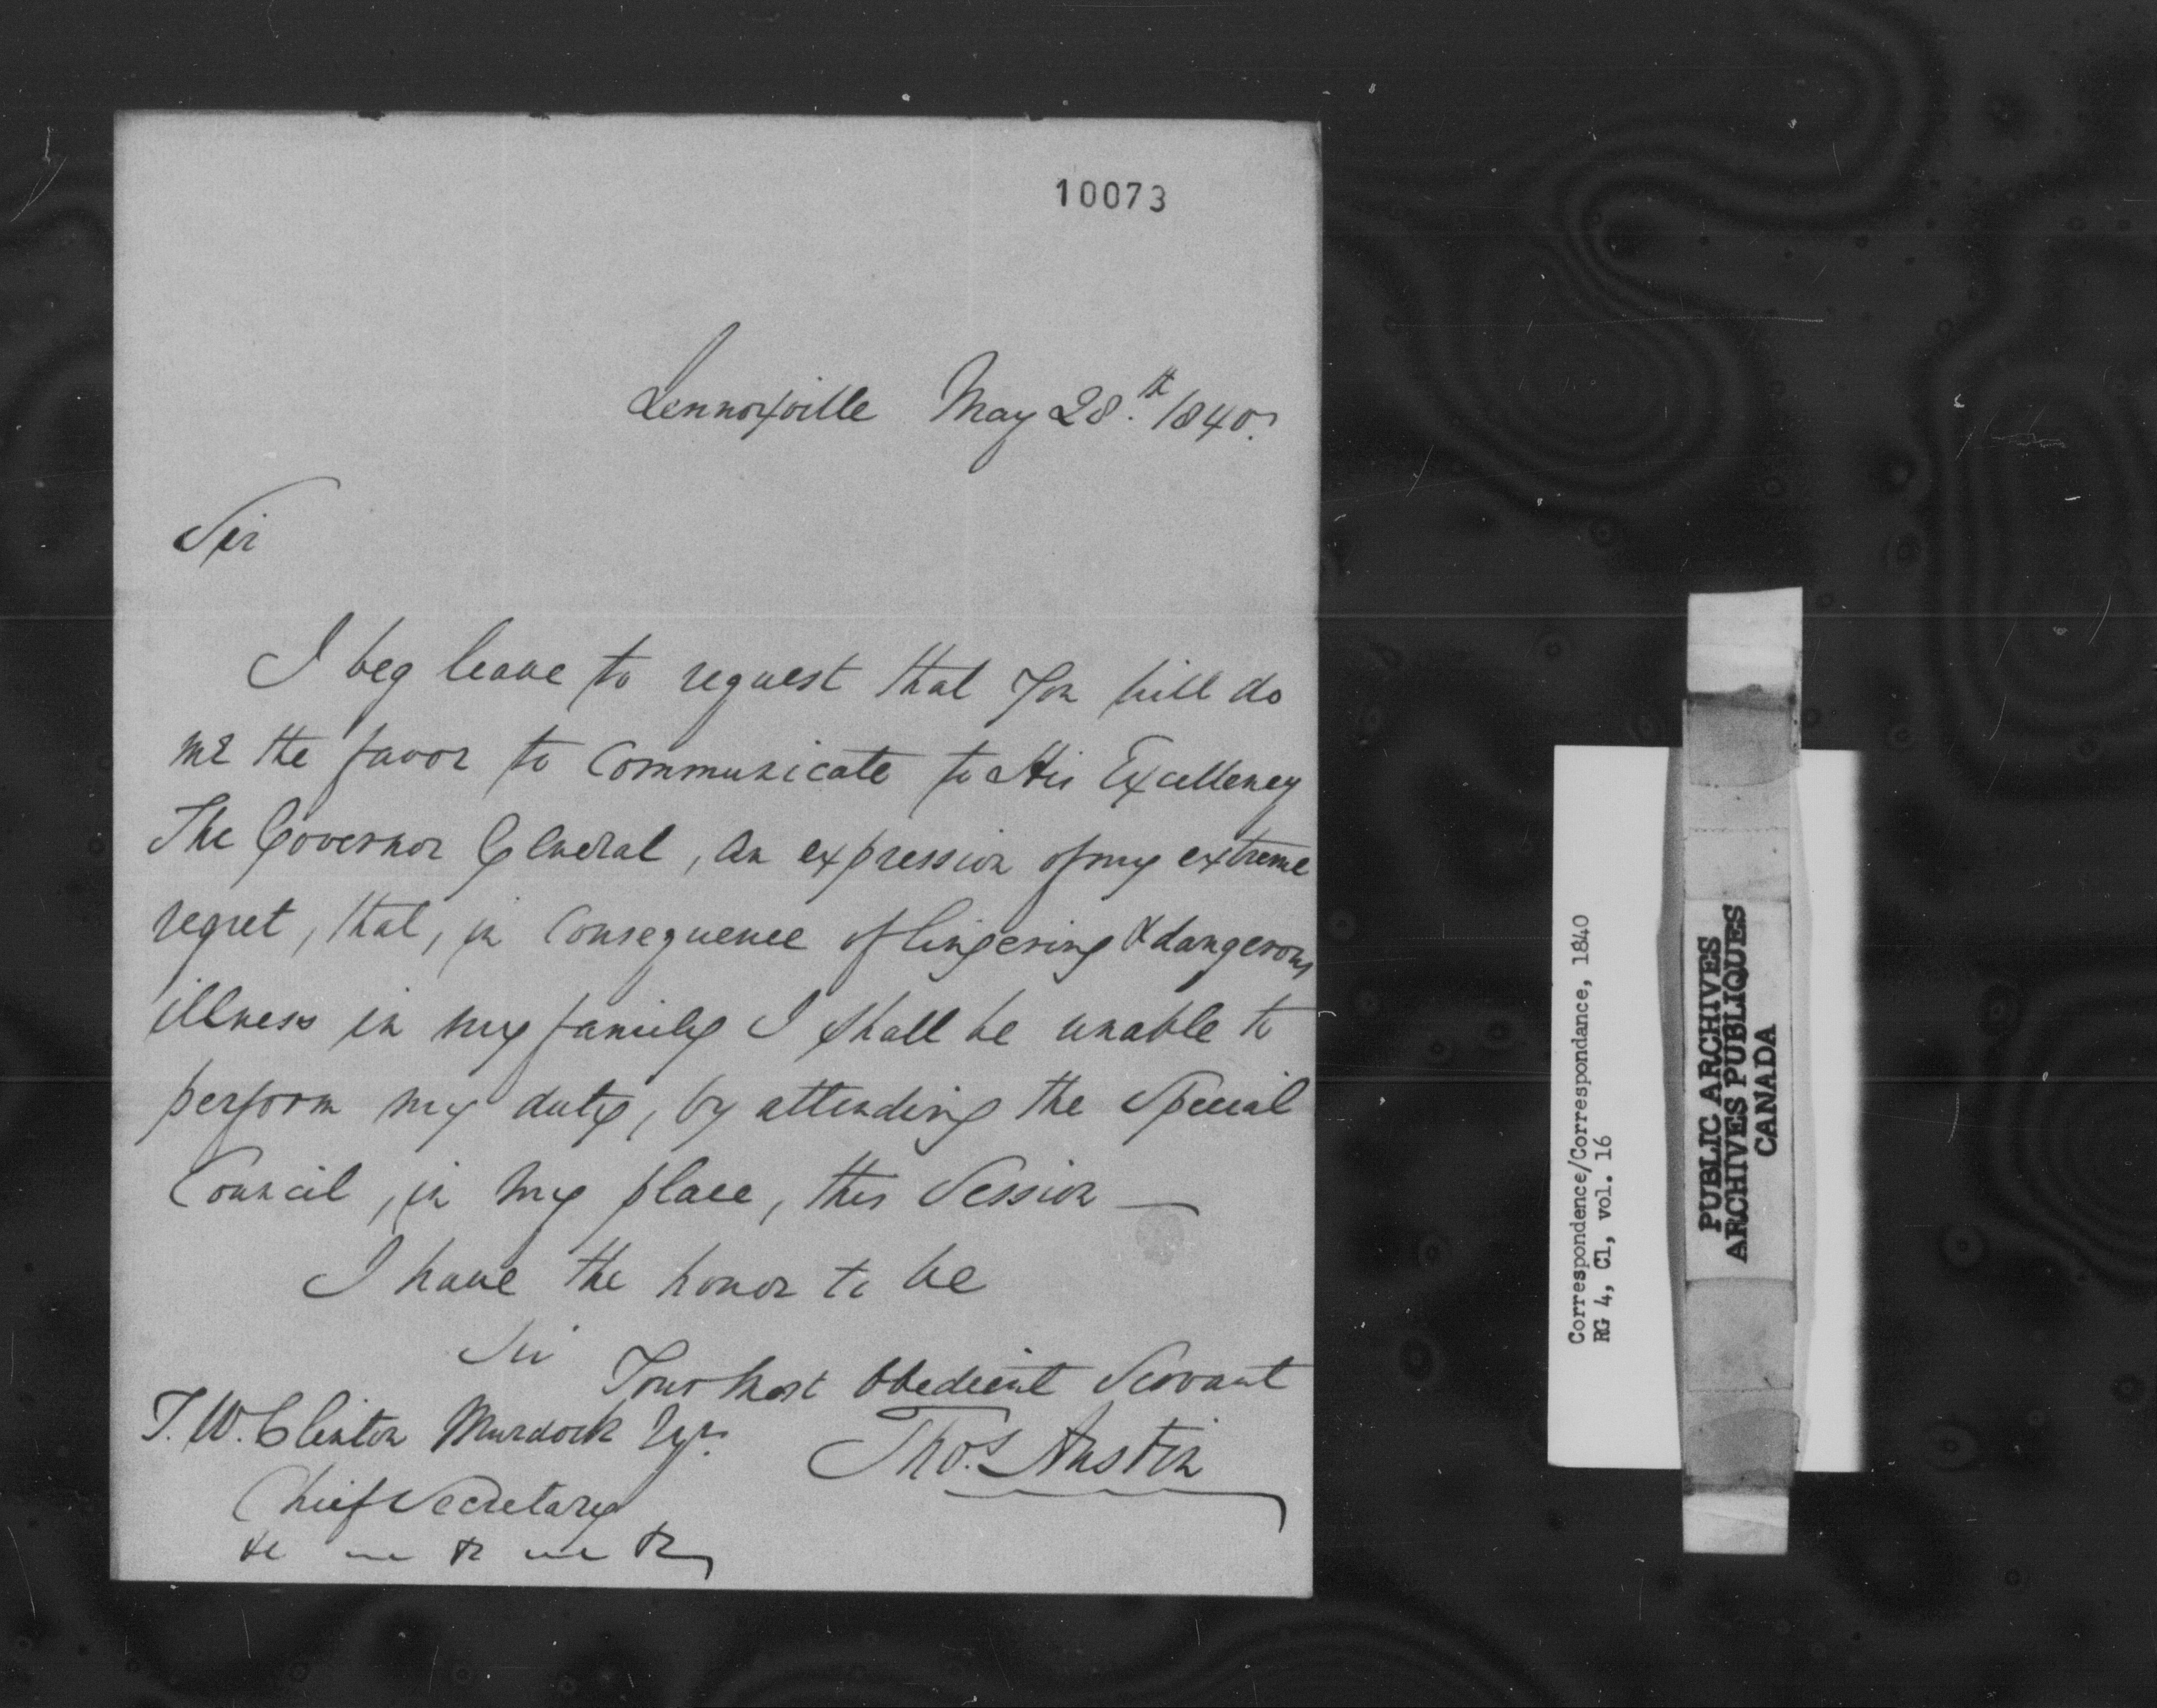 10073
Lennoxville May 28.th 1840.
Sir
I beg leave to request that You will do
me the favor to Communicate to His Excellency
The Governor General, an expression of my extreme
regret, that, in Consequence of lingering & dangerous
illness in my family I shall be unable to
perform my duty, by attending the Special
Council, in my place, this Session —
I have the honor to be
Sir
Your most Obedient Servant
T. W. Clinton Murdock Esqr.
Thos. Austin
Chief Secretary
&c &c &c
Correspondence/Correspondance, 1840
RG 4, C1, vol. 16
PUBLIC ARCHIVES
ARCHIVES PUBLIQUES
CANADA